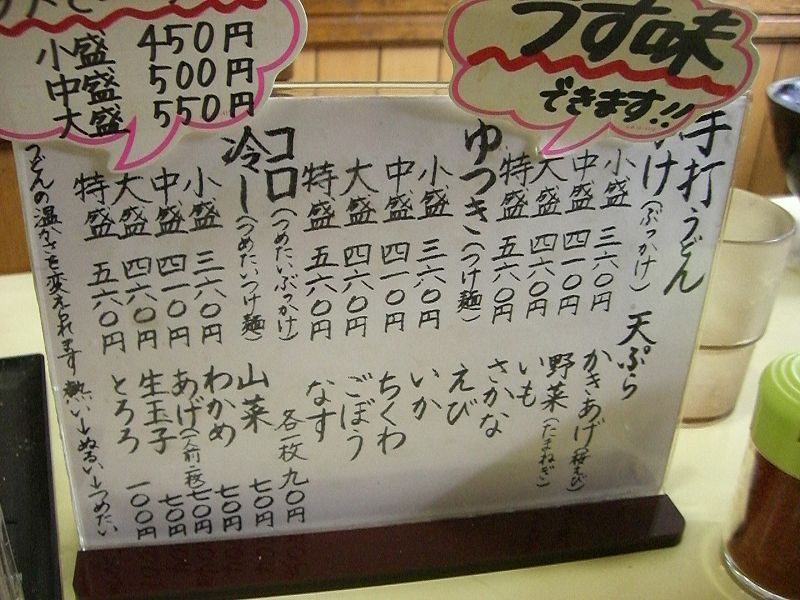 小盛 450円
中盛 500円
大盛 550円
うす味
できます!!
手打うどん
け(ぶっかけ)
小盛 三六〇円
中盛 四一〇円
大盛 四六〇円
特盛 五六〇円
ゆつき(つけ麺)
小盛 三六〇円
中盛 四一〇円
大盛 四六〇円
特盛 五六〇円
コロ(つめたいぶっかけ)
冷し(つめたいつけ麺)
小盛 三六〇円
中盛 四一〇円
大盛 四六〇円
特盛 五六〇円
うどんの温かさを変えられます 熱い→ぬるい→つめたい
天ぷら
かきあげ(桜えび)
野菜(たまねぎ)
いも
さかな
えび
いか
ちくわ
ごぼう
なす
各一枚 九〇円
山菜 七〇円
わかめ 七〇円
あげ(一人前二枚) 七〇円
生玉子 七〇円
とろろ 一〇〇円